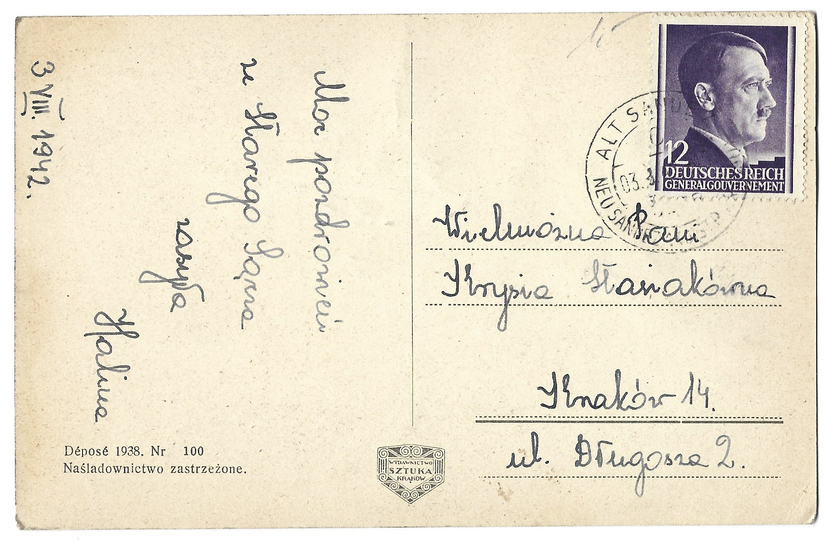 3 VIII. 1942.
Moc pozdrowień
ze Starego Sącza
zasyła
Halina
Déposé 1938. Nr 100
Naśladownictwo zastrzeżone.
WYDAWNICTWO
SZTUKA
KRAKÓW
12
DEUTSCHES REICH
GENERALGOUVERNEMENT
ALT
03.
Wielmożna Pani
Krysia Stasiakówna
Kraków 14.
ul. Długosza 2.